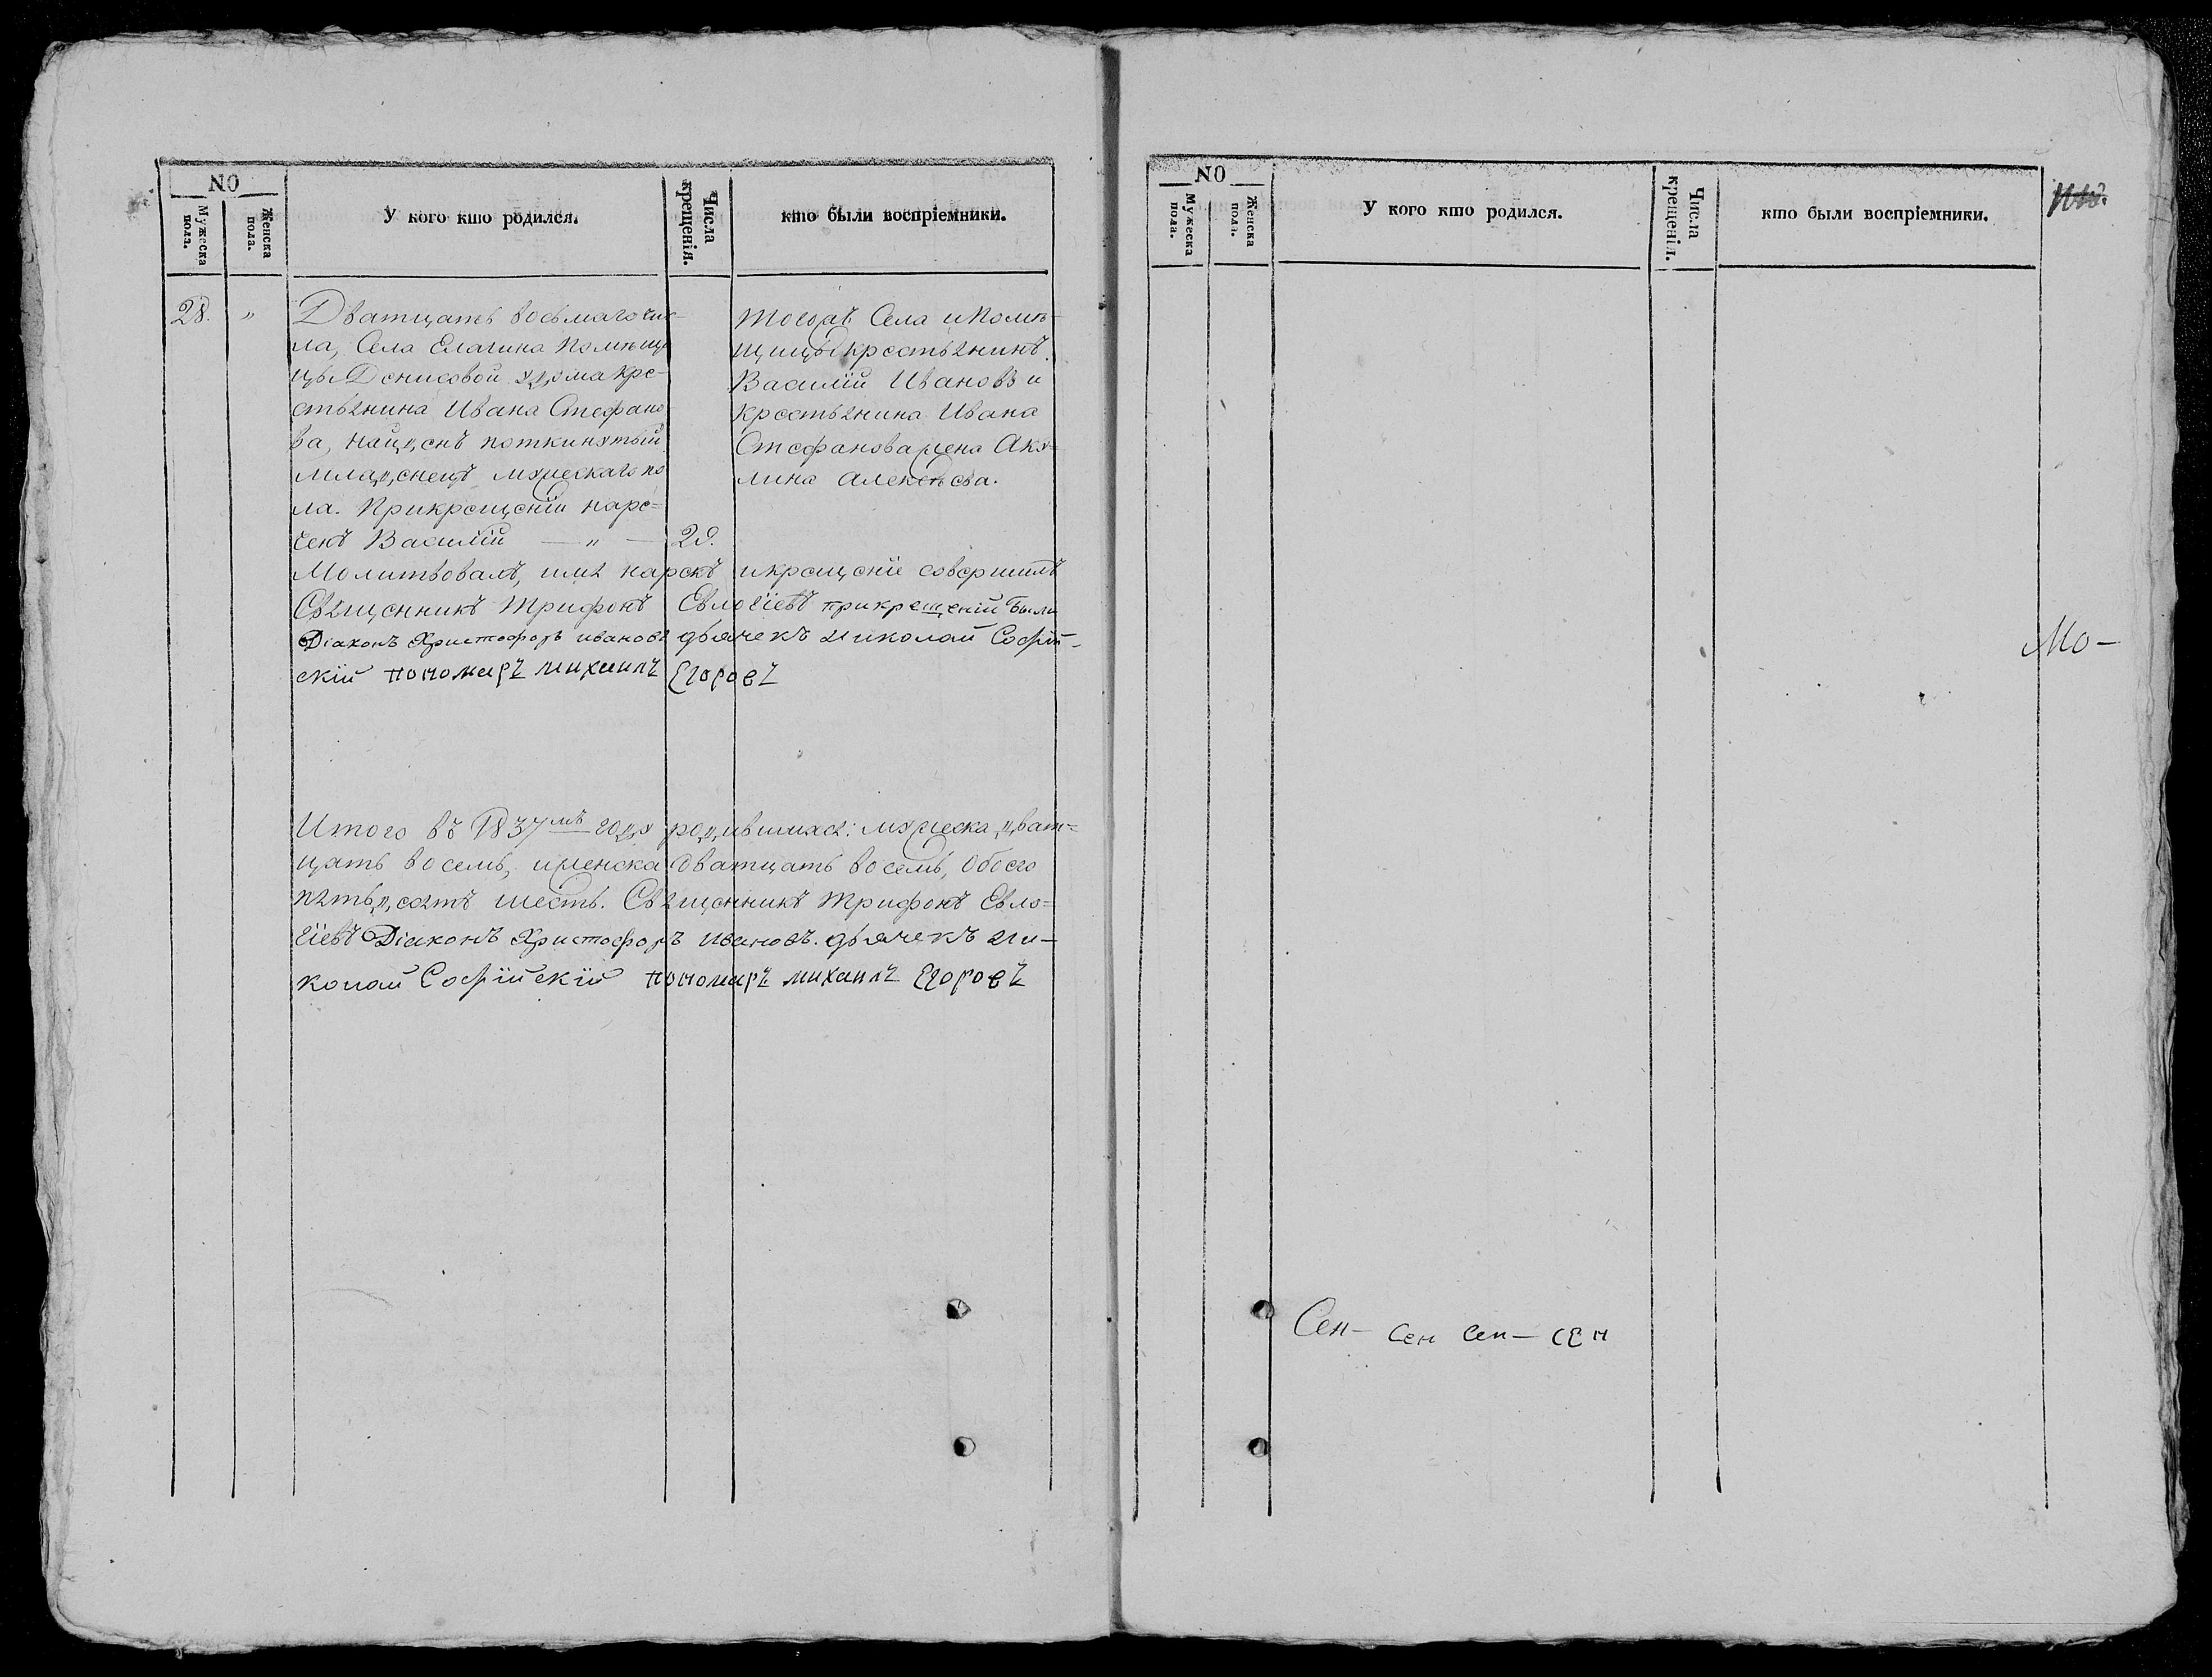 NO
Мужеска пола.
Женска пола.
У кого кто родился.
Числа крещенія.
кто были воспріемники.
28. „
Дватцать восьмаго чис-
ла, Села Елагина помѣщи
цы Денисовой, удома кре-
стьянина Ивана Стефано
ва, найденъ поткинутый
младенецъ мужескаго по
ла. При крещеніи наре=
ченъ Василій — „ — 29.
тогожъ Села и Помѣ-
щицы крестьянинъ
Василій Ивановъ и
крестьянина Ивана
Стефанова жена Аку-
лина Алексѣева.
Молитвовалъ, имя нарекъ и крещеніе совершилъ
Священникъ Трифонъ Евлогіевъ при крещеніи были
Діаконъ Христофоръ Ивановъ дьячекъ Николай Софій-
скій пономарь михаилъ Егоровъ
Итого въ 1837мъ году родившихся: мужеска дват=
цать восемь, и женска дватцать восемь, обоего
пятьдесятъ шесть. Священникъ Трифонъ Евло=
гіевъ Діаконъ Христофоръ Ивановъ. дьячекъ Ни-
колай Софійскій пономарь михаилъ Егоровъ
NO
Мужеска пола.
Женска пола.
У кого кто родился.
Числа крещенія.
кто были воспріемники.
Мо-
Сен- сен сен- сен